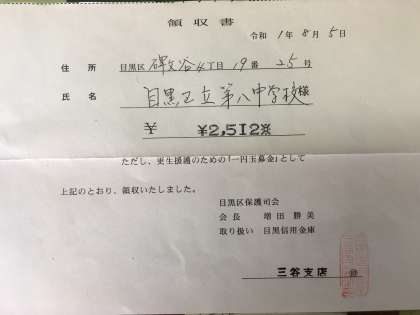 領収書
令和 1年 8月 5日
住所 目黒区 碑文谷4丁目 19番 25号
氏名 目黒区立第八中学校様
¥ ¥2,512※
ただし、更生援護のための「一円玉募金」として
上記のとおり、領収いたしました。
目黒区保護司会
会長 増田勝美
取り扱い 目黒信用金庫
三谷支店 ㊞